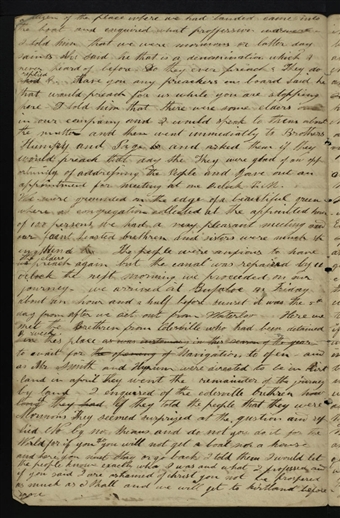 of the place where we had landed came into
the boat and enquired what proffession we
I told them that we were mormons or latter day
saints. that is a denomination which I
never heard of before
replied Have you any preachers on board said he
that would preach for us while you are stopping
here I told him that there were some elders
in our company and I would speak to them about
the matter and then went immediately to Brothers
Humpry and Page and asked them if they
would preach that day They were glad of an op
portunity of addressing the People and gave out an
appointment for meeting at one oclock
We were grounded on the edge of a beautiful green
where a congregation collected at the appointed hour
of 100 persons we had a very pleasant meeting
brethren and sisters were
The people were anxious to have
the elders preach again but the canal was repaired by 11
oclock the next morning we proceeded on our
journey we arrived at Bufaloe on Friday
about an hour and a half before sunset it was the 5th
day from after we set out from Waterloo Here we
met the Brethren from Colesville who had been detained
in this place
to wait for Navigation to open and
as Mr Smith and Hyrum were directed to be in Kirt
land in april they went the remainder of the journey
by land I enquired of the colesville brethren
if they told the people that they were
Mormons They seemed surprized at the question and re
plied No by no means and do not you do it for the
World for if you do you will not get a boat nor a house
and here you must stay or go back I told them I would let
the people know exactly who I was and what I professed
if you said I are ashamed of christ you must not be prospered
as much as I shall and we will get to Kirtland before